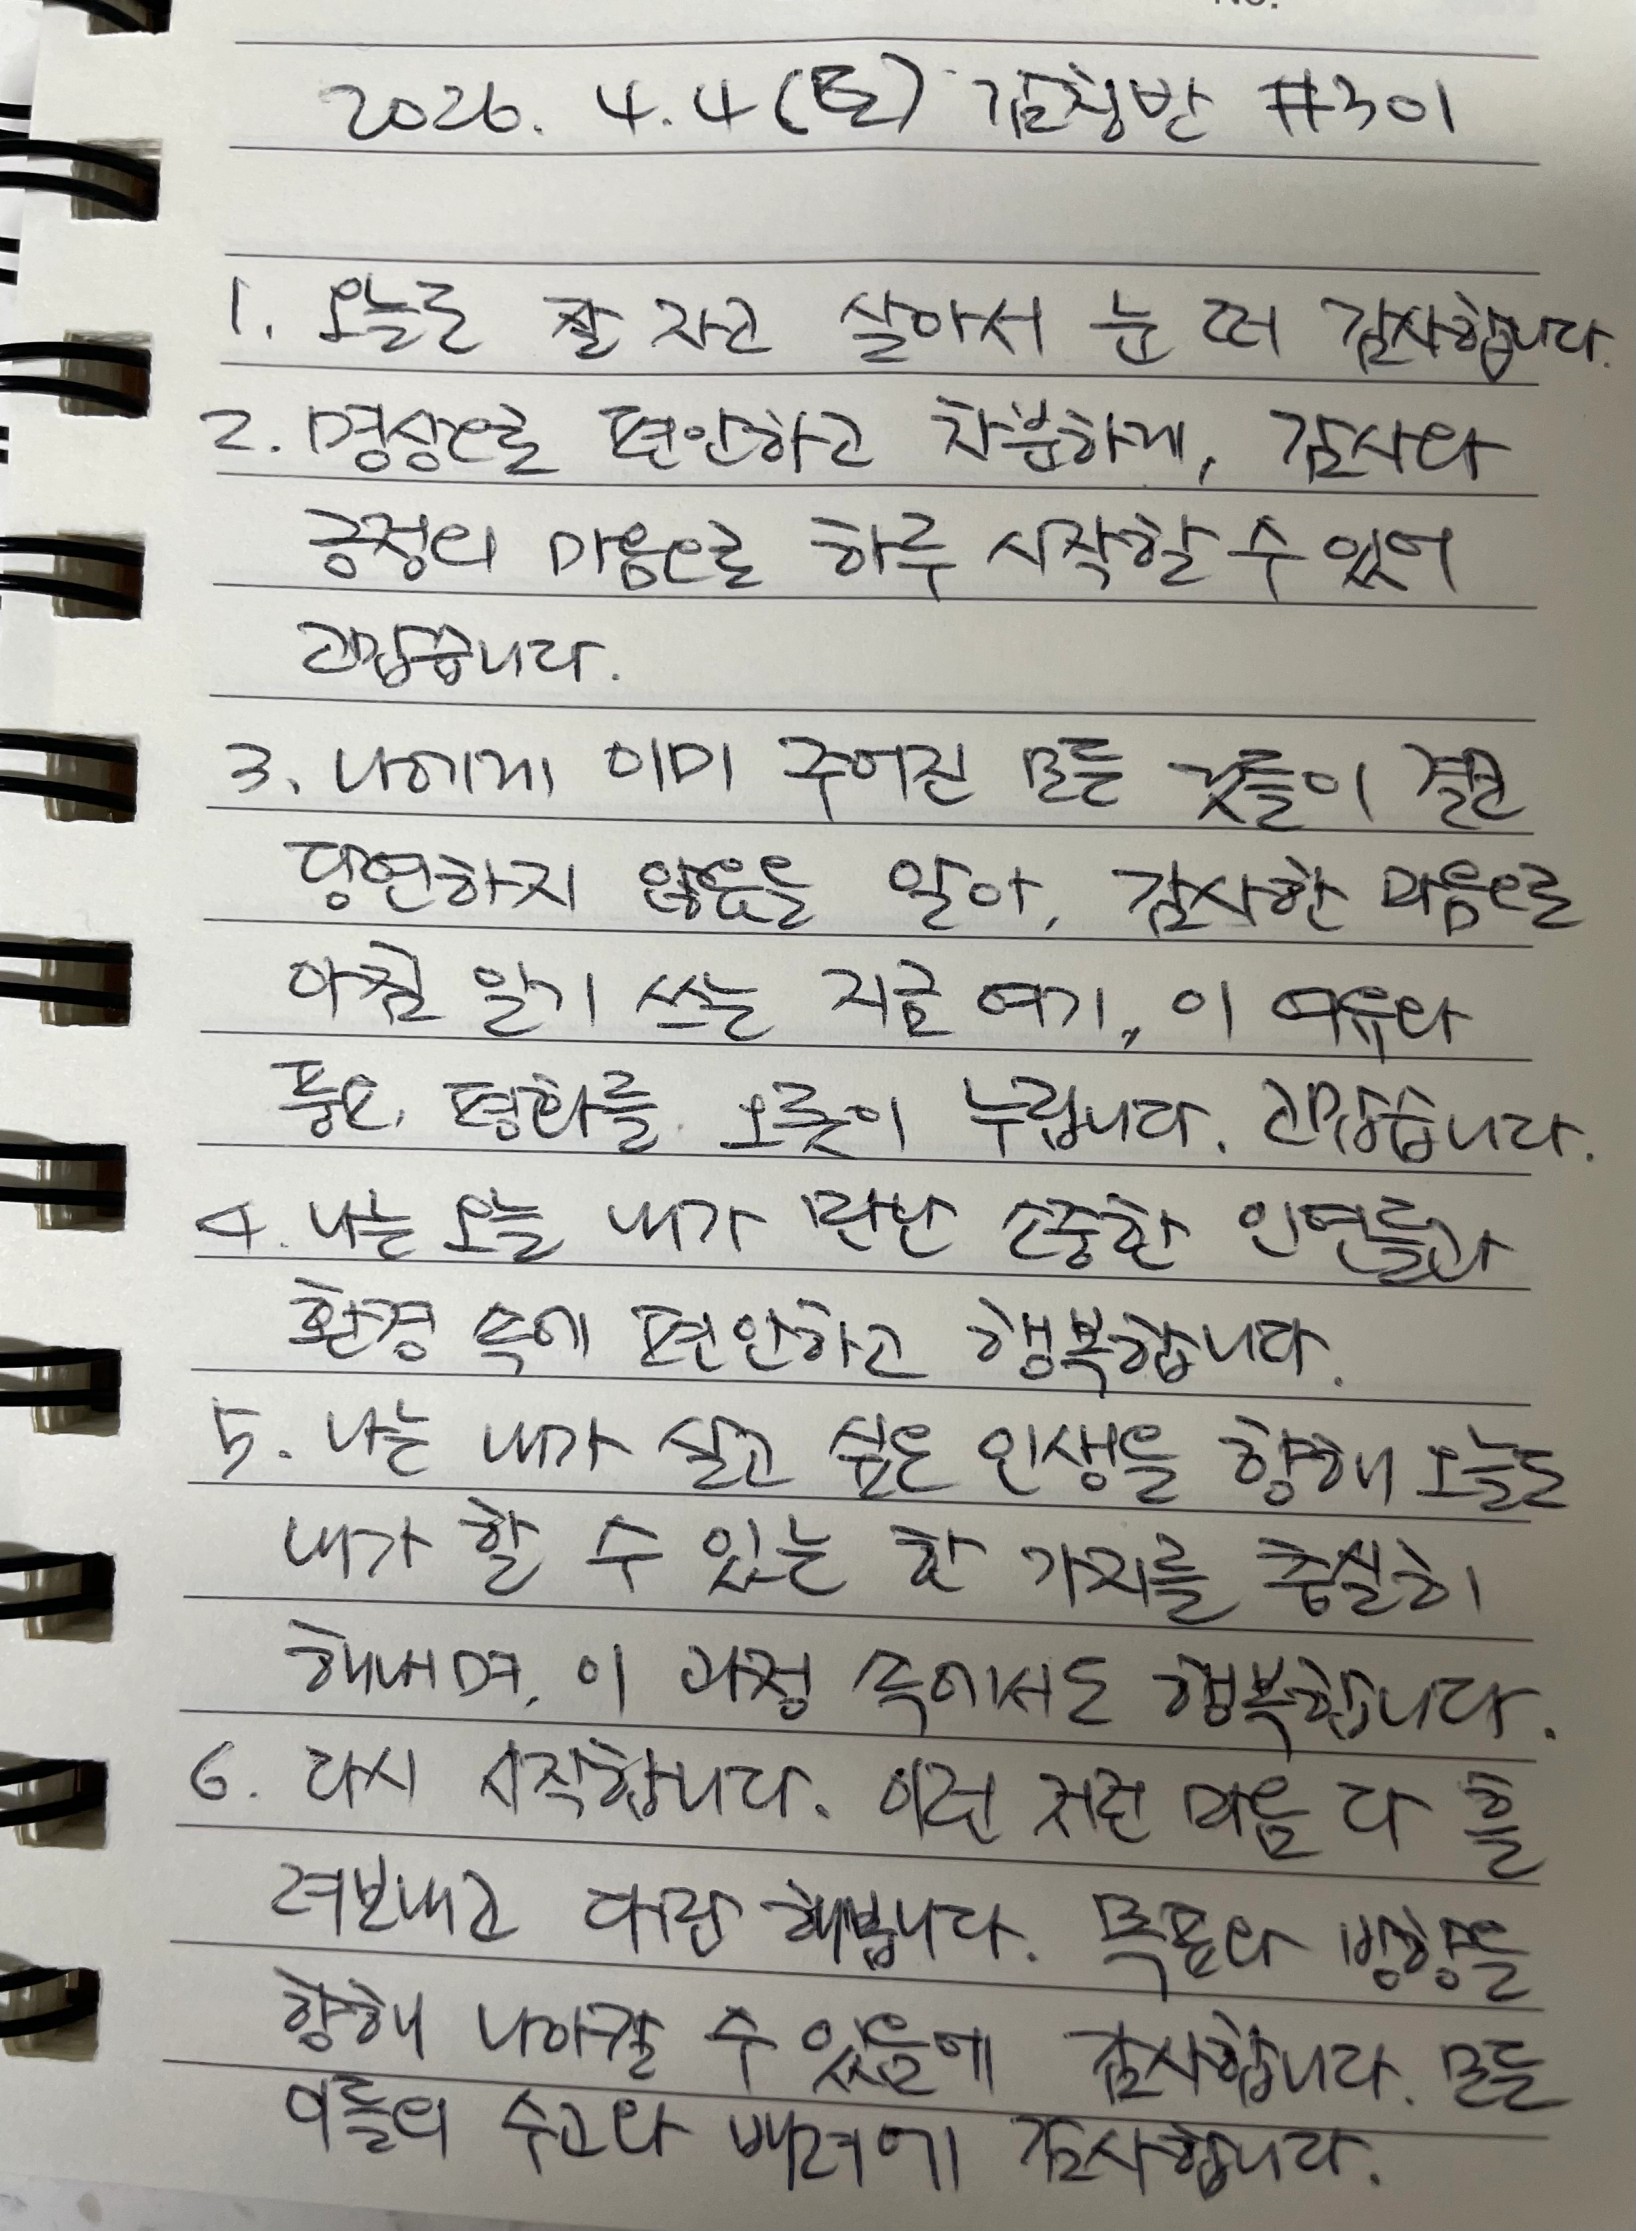 2026. 4. 4 (토) 감칭반 #301
1. 오늘도 잘 자고 살아서 눈 떠 감사합니다.
2. 명상으로 편안하고 차분하게, 감사와
긍정의 마음으로 하루 시작할 수 있어
고맙습니다.
3. 나에게 이미 주어진 모든 것들이 결코
당연하지 않음을 알아, 감사한 마음으로
아침 일기 쓰는 지금 여기, 이 여유와
풍요, 평화를 오롯이 누립니다. 고맙습니다.
4. 나는 오늘 내가 만난 소중한 인연들과
환경 속에 편안하고 행복합니다.
5. 나는 내가 살고 싶은 인생을 향해 오늘도
내가 할 수 있는 한 가지를 충실히
해내며, 이 과정 속에서도 행복합니다.
6. 다시 시작합니다. 이런 저런 마음 다 흘
려보내고 다짐 해봅니다. 목표와 방향을
향해 나아갈 수 있음에 감사합니다. 모든
이들의 수고와 배려에 감사합니다.